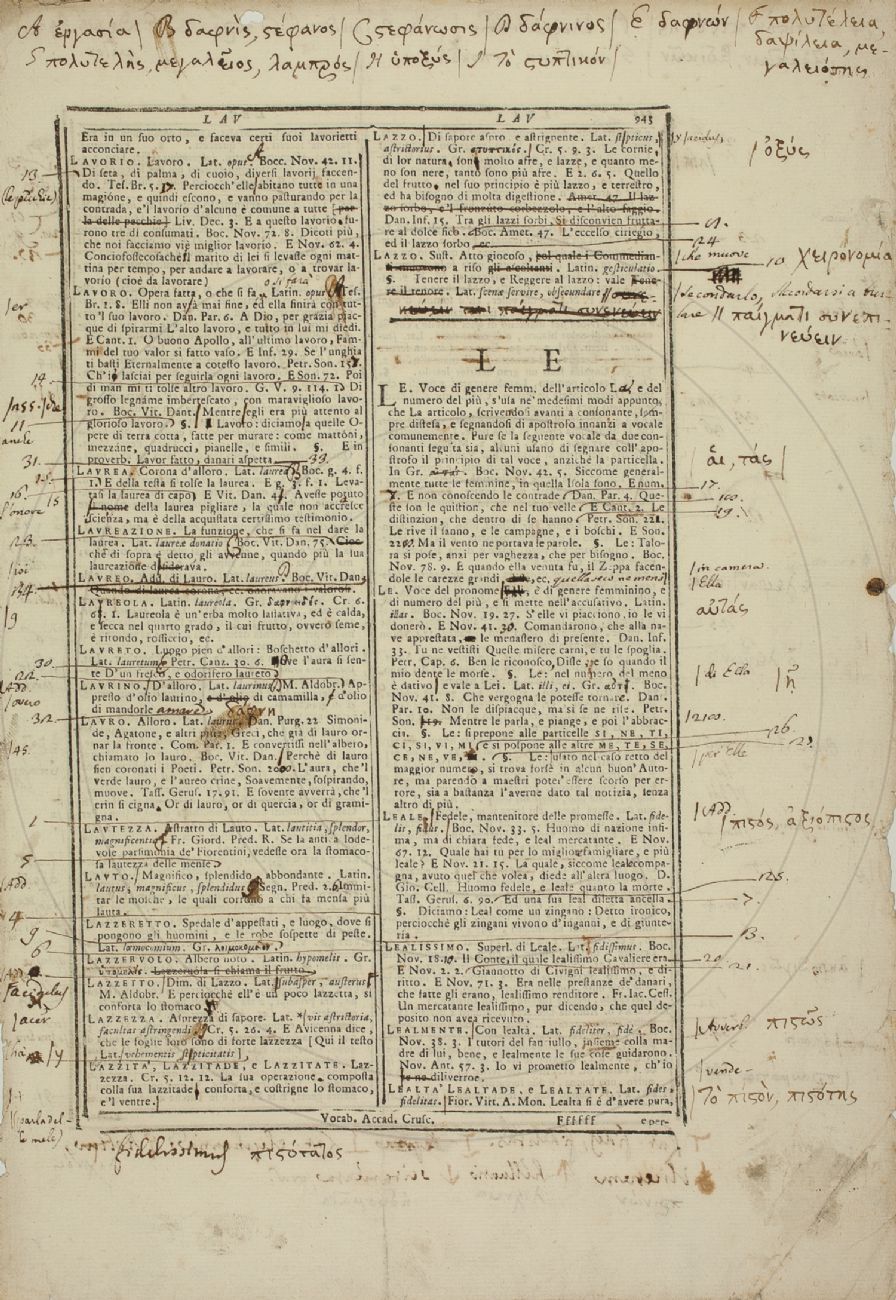 Α ἐργασία / Β δαφνὶς, στέφανος / C στεφάνωσις / D δάφνινος / E δαφνών / F πολυτέλεια,
δαψίλεια, με-
γαλειότης
G πολυτελὴς, μεγαλεῖος, λαμπρός / H ὑποξύς / I Τὸ στυπτικόν /
LAV
Era in un suo orto, e faceva certi suoi lavorietti
acconciare.
LAVORIO. Lavoro. Lat. opus. Bocc. Nov. 42. 11.
Di seta, di palma, di cuoio, diversi lavorii faccen-
do. Tes. Br. 5. 17. Perciocch'elle abitano tutte in una
magione, e quindi escono, e vanno pasturando per la
contrada, e'l lavorio d'alcune è comune a tutte [par-
la delle pecchie.] Liv. Dec. 3. E a questo lavorio fu-
rono tre di consumati. Bocc. Nov. 72. 8. Dicoti più,
che noi facciamo vie miglior lavorio. E Nov. 62. 4.
Conciofossecosachè il marito di lei si levasse ogni mat-
tina per tempo, per andare a lavorare, o a trovar la-
vorio (cioè da lavorare)
LAVORO. Opera fatta, o che si fa. Latin. opus. Tes.
Br. 1. 8. Elli non avrà mai fine, ed ella finirà con tut-
to 'l suo lavoro. Dan. Par. 6. A Dio, per grazia piac-
que di spirarmi L'alto lavoro, e tutto in lui mi diedi.
E Cant. 1. O buono Apollo, all'ultimo lavoro, Fam-
mi del tuo valor sì fatto vaso. E Inf. 29. Se l'unghia
ti basti Eternalmente a cotesto lavoro. Petr. Son.
Ch'io lasciai per seguirla ogni lavoro. E Son. 72. Poi
di man mi ti tolse altro lavoro. G. V. 9. 114. 1. Di
grosso legname imbertescato, con maraviglioso lavo-
ro. Boc. Vit. Dant. Mentre egli era più attento al
glorioso lavoro. §. Lavoro: diciamo a quelle O-
pere di terra cotta, fatte per murare: come mattoni,
mezzane, quadrucci, pianelle, e simili. §. E in
proverb. Lavor fatto, danari aspetta. 33.
LAUREA. Corona d'alloro. Lat. laurea. Boc. g. 4. f.
1. E della testa si tolse la laurea. E g. 3. f. 1. Leva-
tasi la laurea di capo. E Vit. Dan. 47. Avesse potuto
il nome della laurea pigliare, la quale non accresce
scienza, ma è della acquistata certissimo testimonio.
LAUREAZIONE. La funzione, che si fa nel dare la
laurea. Lat. laureæ donatio. Boc. Vit. Dan. 75. Ciò
chè di sopra è detto gli avvenne, quando più la sua
laureazione disiderava.
LAUREO. Add. di Lauro. Lat. laureus. Boc. Vit. Dan.
Quando di laurea corona, ec. onoravano i valorosi.
LAUREOLA. Latin. laureola. Gr. δαφνοειδές. Cr. 6.
65. 1. Laureola è un'erba molto lassativa, ed è calda,
e secca nel quarto grado, il cui frutto, ovvero seme,
è ritondo, rossiccio, ec.
LAURETO. Luogo pien d'allori: Boschetto d'allori.
Lat. lauretum. Petr. Canz. 30. 6. Ove l'aura si sen-
te D'un fresco, e odorifero laureto.
LAURINO. D'alloro. Lat. laurinus. M. Aldobr. Ap-
presso d'olio laurino, e d'olio di camamilla, e d'olio
di mandorle amare.
LAURO. Alloro. Lat. laurus. Dan. Purg. 22 Simoni-
de, Agatone, e altri piùe Greci, che già di lauro or-
nar la fronte. Com. Par. 1. E convertissi nell'albero,
chiamato lo lauro. Boc. Vit. Dan. Perchè di lauro
sien coronati i Poeti. Petr. Son. 2000. L'aura, che'l
verde lauro, e l'aureo crine, Soavemente, sospirando,
muove. Tass. Gerus. 17. 91. E sovente avverrà, che'l
crin si cigna Or di lauro, or di quercia, or di grami-
gna.
LAUTEZZA. Astratto di Lauto. Lat. lautitia, splendor,
magnificentia. Fr. Giord. Pred. R. Se la anti a lode-
vole parsimonia de' Fiorentini, vedeste ora la stomaco-
sa lautezza delle mense.
LAUTO. Magnifico, splendido, abbondante. Latin.
lautus, magnificus, splendidus. Segn. Pred. 2. 6. Ammi-
rar le mosche, le quali corrono a chi fa mensa più
lauta.
LAZZERETTO. Spedale d'appestati, e luogo, dove si
pongono gli huomini, e le robe sospette di peste.
Lat. læmocomium. Gr. λοιμοκομεῖον.
LAZZERVOLO. Albero noto. Latin. hypomelis. Gr.
ὑπομηλίς. Lazzeruola si chiama il frutto.
LAZZETTO. Dim. di Lazzo. Lat. subasper, austerus.
M. Aldobr. E perciocchè ell'è un poco lazzetta, si
conforta lo stomaco.
LAZZEZZA. Asprezza di sapore. Lat. vis astrictoria,
facultas astringendi. Cr. 5. 26. 4. E Avicenna dice,
che le foglie loro sono di forte lazzezza [Qui il testo
Lat. vehementis stipticitatis].
LAZZITÀ, LAZZITADE, e LAZZITATE. Laz-
zezza. Cr. 5. 12. 12. La sua operazione composta
colla sua lazzitade, conforta, e costrigne lo stomaco,
e'l ventre.
Vocab. Accad. Crusc.
fidelissimus πιστότατος
LAV 943
LAZZO. Di sapore aspro, e astrignente. Lat. stipticus,
astrictorius. Gr. στυπτικός. Cr. 5. 9. 3. Le cornie,
di lor natura, sono molto afre, e lazze, e quanto me-
no son nere, tanto sono più afre. E 2. 6. 5. Quello
del frutto, nel suo principio è più lazzo, e terrestro,
ed ha bisogno di molta digestione. Amet. 47. Il laz-
zo sorbo, e'l fronzuto corbezzolo, e l'alto faggio.
Dan. Inf. 15. Tra gli lazzi sorbi, Si disconvien frutta-
re al dolce fico. Boc. Amet. 47. L'eccelso ciriegio,
ed il lazzo sorbo, ec.
LAZZO. Sust. Atto giocoso, pel quale i Commedian-
ti muovono a riso gli ascoltanti. Latin. gesticulatio.
§. Tenere il lazzo, e Reggere al lazzo: vale Tene-
re il tenore. Lat. scenæ servire, obsecundare
LE
LE. Voce di genere femm. dell'articolo La, e del
numero del più, s'usa ne' medesimi modi appunto,
che La articolo, scrivendosi avanti a consonante, sem-
pre distesa, e segnandosi di apostrofo innanzi a vocale
comunemente. Pure se la seguente vocale da due con-
sonanti seguita sia, alcuni usano di segnare coll'apo-
strofo il principio di tal voce, anzichè la particella.
In Gr. Bocc. Nov. 42. 5. Siccome general-
mente tutte le femmine, in quella Isola sono. E num.
7. E non conoscendo le contrade. Dan. Par. 4. Que-
ste son le quistion, che nel tuo velle. E Cant. 2. Le
distinzion, che dentro di se hanno. Petr. Son. 221.
Le rive il sanno, e le campagne, e i boschi. E Son.
Ma il vento ne portava le parole. §. Le: Talo-
ra si pose, anzi per vaghezza, che per bisogno. Boc.
Nov. 78. 9. E quando ella venuta fu, il Zeppa facen-
dole le carezze grandi, ec.
LE. Voce del pronome, è di genere femminino, e
di numero del più, e si mette nell'accusativo. Latin.
illas. Boc. Nov. 19. 27. S'elle vi piacciono, io le vi
donerò. E Nov. 41. 30. Comandarono, che alla na-
ve apprestata, le menassero di presente. Dan. Inf.
33. Tu ne vestisti Queste misere carni, e tu le spoglia.
Petr. Cap. 6. Ben le riconosco, Disse, e so quando il
mio dente le morse. §. Le: nel numero del meno
è dativo, e vale a Lei. Lat. illi, ei. Gr. αὐτῇ. Boc.
Nov. 41. 8. Che vergogna le potesse tornare. Dan.
Par. 10. Non le dispiacque, ma sì se ne rise. Petr.
Son. Mentre le parla, e piange, e poi l'abbrac-
cia. §. Le: si prepone alle particelle SI, NE, TI,
CI, SI, VI, MI, e si pospone alle altre ME, TE, SE,
CE, NE, VE. §. Le: usato nel caso retto del
maggior numero, si trova forse in alcun buon'Auto-
re, ma parendo a maestri poter'essere scorso per er-
rore, sia a bastanza l'averne dato tal notizia, senza
altro di più.
LEALE. Fedele, mantenitore delle promesse. Lat. fide-
lis, fidus. Boc. Nov. 33. 5. Huomo di nazione infi-
ma, ma di chiara fede, e leal mercatante. E Nov.
67. 12. Quale hai tu per lo miglior famigliare, e più
leale? E Nov. 21. 15. La quale, siccome leale compa-
gna, avuto quel che volea, diede all'altra luogo. D.
Gio. Cell. Huomo fedele, e leale quanto la morte.
Tass. Gerus. 6. 90. Ed una sua leal diletta ancella.
§. Diciamo: Leal come un zingano: Detto ironico,
perciocchè gli zingani vivono d'inganni, e di giunte-
ria.
LEALISSIMO. Superl. di Leale. Lat. fidissimus. Boc.
Nov. 18. Il Conte, il quale lealissimo Cavaliere era.
E Nov. 2. 2. Giannotto di Civignì lealissimo, e di-
ritto. E Nov. 71. 3. Era nelle prestanze de' danari,
che fatte gli erano, lealissimo renditore. Fr. Iac. Cess.
Un mercatante lealissimo, pur dicendo, che quel de-
posito non avea ricevuto.
LEALMENTE. Con lealtà. Lat. fideliter, fide. Boc.
Nov. 38. 3. I tutori del fanciullo, insieme colla ma-
dre di lui, bene, e lealmente le sue cose guidarono.
Nov. Ant. 57. 3. Io vi prometto lealmente, ch'io
diliverroe.
LEALTÀ, LEALTADE, e LEALTATE. Lat. fides,
fidelitas. Fior. Virt. A. Mon. Lealtà si è d'avere pura,
Ffffff e per-
ὀξύς
che muove 10 χειρονομία
παίγματι συνεπι-
νεύειν
αἱ, τάς
17.
100.
in camera
Ella
αὐτάς
di Ella ᾗ
26.
per Elle
Add
πιστός, ἀξιόπιστος
125.
7.
13.
20
21.
Avverb. πιστῶς
vende-
Τὸ πιστὸν, πιστότης
13.
er
14.
11
anche
31.
16. 15
l'onore
23.
144
30.
22.
Add.
overo
32
45.
1
5
Add
4
9
6
acidulus
acer
ha y
(parla del-
le mele)